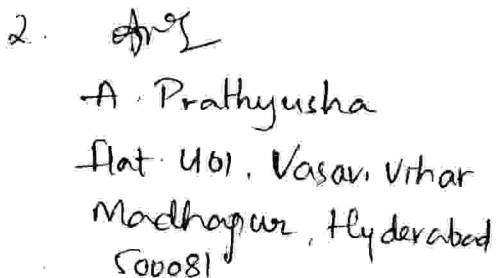 2.
A. Prathyusha
flat. 401, Vasavi Vihar
Madhapur, Hyderabad
500081